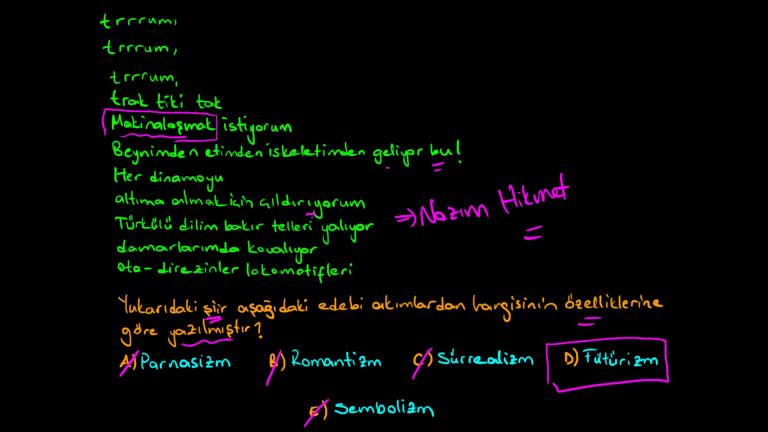 trrrum,
trrrum,
trrrum,
trak tiki tak
Makinalaşmak istiyorum
Beynimden etimden iskeletimden geliyor bu!
Her dinamoyu
altıma almak için çıldırıyorum
Türkülü dilim bakır telleri yalıyor
damarlarımda kovalıyor
oto-direzinler lokomotifleri
⇒ Nazım Hikmet
Yukarıdaki şiir aşağıdaki edebi akımlardan hangisinin özelliklerine
göre yazılmıştır?
A) Parnasizm B) Romantizm C) Sürrealizm D) Fütürizm
E) Sembolizm